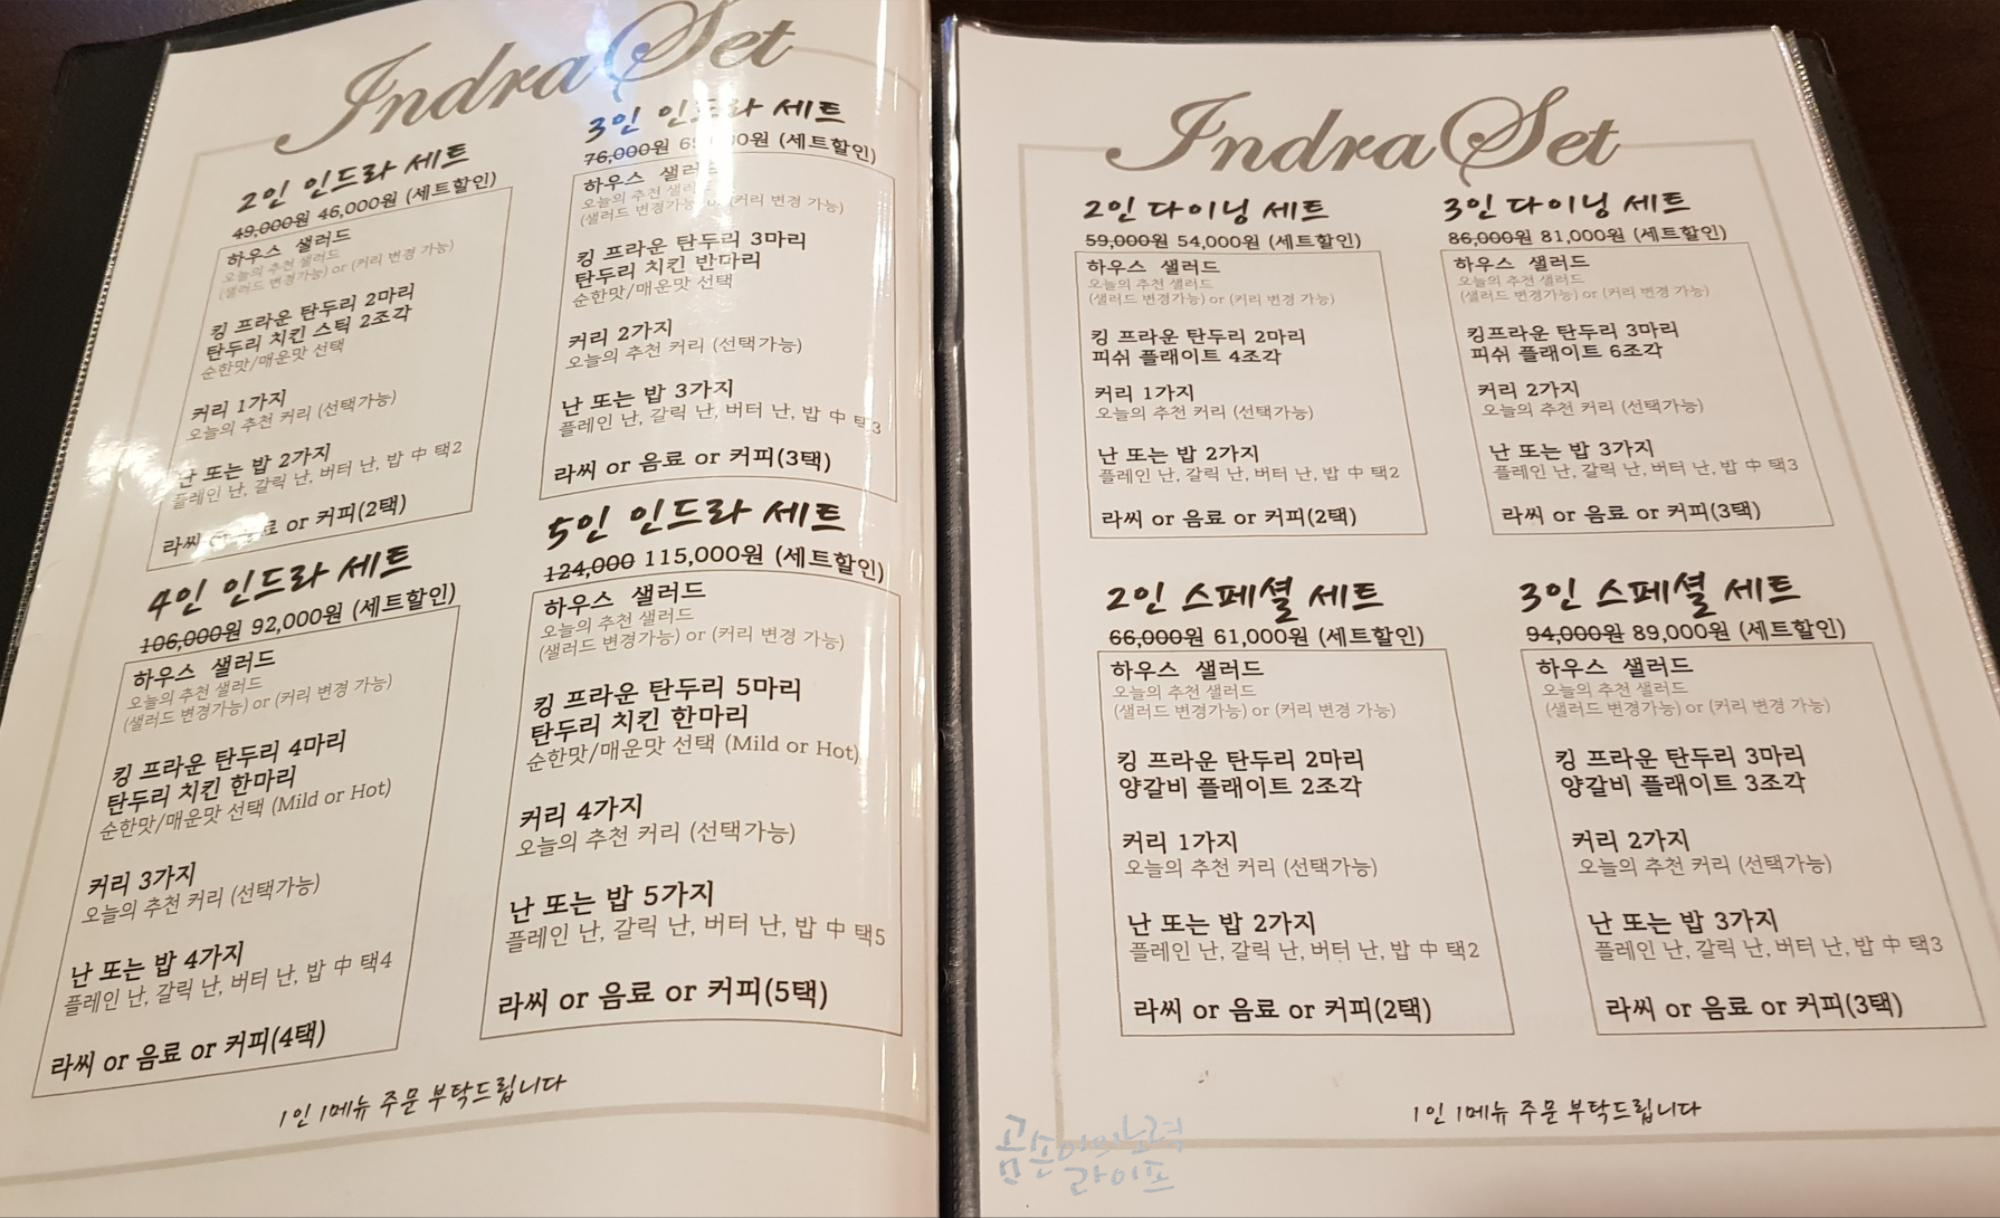 Indra Set
2인 인드라 세트
49,000원 46,000원 (세트할인)
하우스 샐러드
오늘의 추천 샐러드
(샐러드 변경가능) or (커리 변경 가능)
킹 프라운 탄두리 2마리
탄두리 치킨 스틱 2조각
순한맛/매운맛 선택
커리 1가지
오늘의 추천 커리 (선택가능)
난 또는 밥 2가지
플레인 난, 갈릭 난, 버터 난, 밥 中 택2
라씨 or 음료 or 커피(2택)
3인 인드라 세트
76,000원 (세트할인)
하우스 샐러드
오늘의 추천 샐러드
(샐러드 변경가능) or (커리 변경 가능)
킹 프라운 탄두리 3마리
탄두리 치킨 반마리
순한맛/매운맛 선택
커리 2가지
오늘의 추천 커리 (선택가능)
난 또는 밥 3가지
플레인 난, 갈릭 난, 버터 난, 밥 中 택3
라씨 or 음료 or 커피(3택)
4인 인드라 세트
106,000원 92,000원 (세트할인)
하우스 샐러드
오늘의 추천 샐러드
(샐러드 변경가능) or (커리 변경 가능)
킹 프라운 탄두리 4마리
탄두리 치킨 한마리
순한맛/매운맛 선택 (Mild or Hot)
커리 3가지
오늘의 추천 커리 (선택가능)
난 또는 밥 4가지
플레인 난, 갈릭 난, 버터 난, 밥 中 택4
라씨 or 음료 or 커피(4택)
5인 인드라 세트
124,000 115,000원 (세트할인)
하우스 샐러드
오늘의 추천 샐러드
(샐러드 변경가능) or (커리 변경 가능)
킹 프라운 탄두리 5마리
탄두리 치킨 한마리
순한맛/매운맛 선택 (Mild or Hot)
커리 4가지
오늘의 추천 커리 (선택가능)
난 또는 밥 5가지
플레인 난, 갈릭 난, 버터 난, 밥 中 택5
라씨 or 음료 or 커피(5택)
1인 1메뉴 주문 부탁드립니다
Indra Set
2인 다이닝 세트
59,000원 54,000원 (세트할인)
하우스 샐러드
오늘의 추천 샐러드
(샐러드 변경가능) or (커리 변경 가능)
킹 프라운 탄두리 2마리
피쉬 플래이트 4조각
커리 1가지
오늘의 추천 커리 (선택가능)
난 또는 밥 2가지
플레인 난, 갈릭 난, 버터 난, 밥 中 택2
라씨 or 음료 or 커피(2택)
3인 다이닝 세트
86,000원 81,000원 (세트할인)
하우스 샐러드
오늘의 추천 샐러드
(샐러드 변경가능) or (커리 변경 가능)
킹프라운 탄두리 3마리
피쉬 플래이트 6조각
커리 2가지
오늘의 추천 커리 (선택가능)
난 또는 밥 3가지
플레인 난, 갈릭 난, 버터 난, 밥 中 택3
라씨 or 음료 or 커피(3택)
2인 스페셜 세트
66,000원 61,000원 (세트할인)
하우스 샐러드
오늘의 추천 샐러드
(샐러드 변경가능) or (커리 변경 가능)
킹 프라운 탄두리 2마리
양갈비 플래이트 2조각
커리 1가지
오늘의 추천 커리 (선택가능)
난 또는 밥 2가지
플레인 난, 갈릭 난, 버터 난, 밥 中 택2
라씨 or 음료 or 커피(2택)
3인 스페셜 세트
94,000원 89,000원 (세트할인)
하우스 샐러드
오늘의 추천 샐러드
(샐러드 변경가능) or (커리 변경 가능)
킹 프라운 탄두리 3마리
양갈비 플래이트 3조각
커리 2가지
오늘의 추천 커리 (선택가능)
난 또는 밥 3가지
플레인 난, 갈릭 난, 버터 난, 밥 中 택3
라씨 or 음료 or 커피(3택)
1인 1메뉴 주문 부탁드립니다
라이프